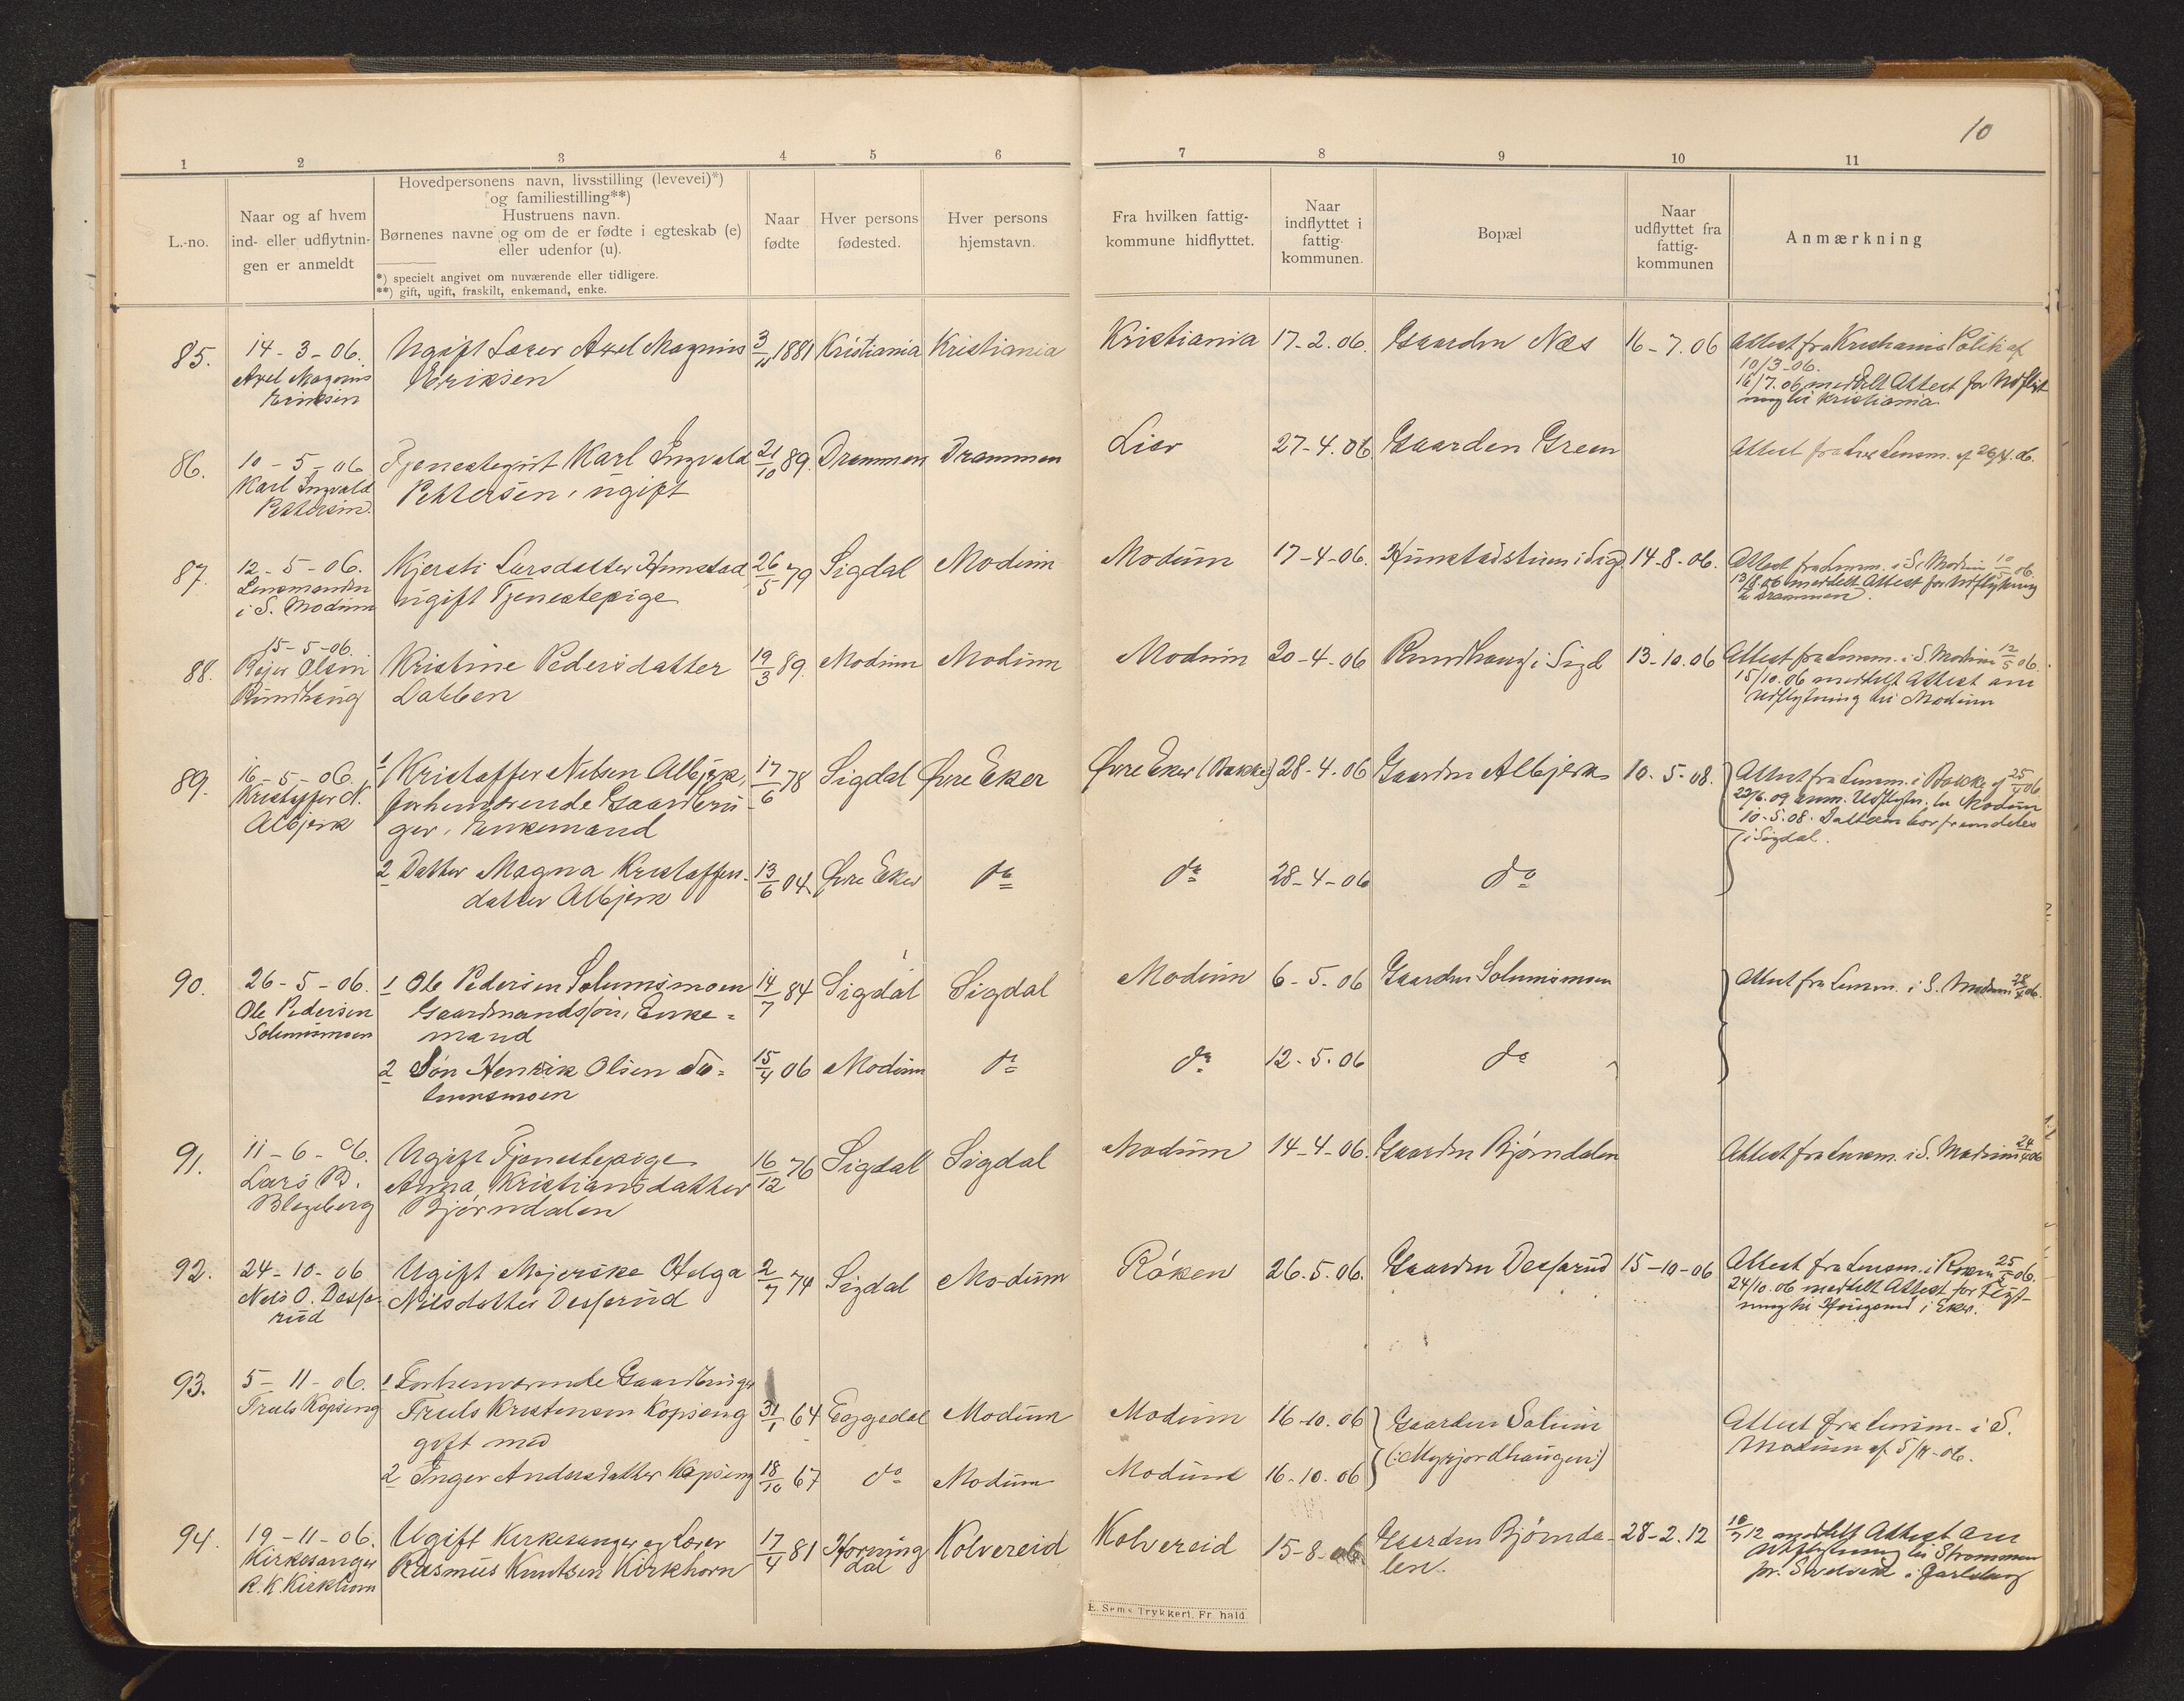 10
1 2 3 4 5 6 7 8 9 10 11
L.-no.
Naar og af hvem
ind- eller udflytnin-
gen er anmeldt
Hovedpersonens navn, livsstilling (levevei)*)
og familiestilling**)
Hustruens navn.
Børnenes navne og om de er fødte i egteskab (e)
eller udenfor (u).
*) specielt angivet om nuværende eller tidligere.
**) gift, ugift, fraskilt, enkemand, enke.
Naar
fødte
Hver persons
fødested.
Hver persons
hjemstavn.
Fra hvilken fattig-
kommune hidflyttet.
Naar
indflyttet i
fattig-
kommunen.
Bopæl
Naar
udflyttet fra
fattig-
kommunen
Anmærkning
85.
14-3-06.
Axel Magnus
Eriksen
Ugift Axel Magnus
Eriksen
1881
Kristiania
Kristiania
Kristiania
17-2.06.
Gaarden Næs
16-7.06
Attest fra Kristiania Politi af
10/3-06.
16/7.06 meddelt Attest for Udflyt-
ning til Kristiania.
86.
10-5-06
Karl Ingvald
Pettersen.
Tjenestegut Karl Ingvald
Pettersen, ugift
21/10 89.
Drammen
Drammen
Lier
27-4.06
Gaarden Green
Attest fra Lier Lensm. af 26/4.06.
87.
12-5-06.
Lensmanden
i S. Modum
Kjersti Larsdatter Hunstad
ugift Tjenestepige
26/5 79
Sigdal
Modum
Modum
17-4-06.
Hunstadstuen i Sigd.
14-8-06.
Attest fra Lensm. i S. Modum 10/5 06.
13/8.06 meddelt Attest for Udflytning
til Drammen.
88.
15-5-06.
Olsen
Rundhaug
Kristine Pedersdatter
Dabben
19/3 89.
Modum
Modum
Modum
20-4-06
Rundhaug i Sigd
13-10.06
Attest fra Lensm. i S. Modum 12/5 06.
15/10.06 meddelt Attest om
Udflytning til Modum
89.
16-5-06.
Kristoffer N.
Albjerk
1 Kristoffer Nilsen Albjerk,
forhenværende Gaardbru-
ger, Enkemand
17/6 78
Sigdal
Øvre Eker
Øvre Eker (Bakke)
28-4.06
Gaarden Albjerk
10.5-08.
Attest fra Lensm. i Bakke af 25/4 06.
22/6.09 anm. Udflytn. til Modum
10-5.08. Datteren bor fremdeles
i Sigdal.
2 Datter Magna Kristoffers-
datter Albjerk
13/6 04
Øvre Eker
do
do
28-4-06
do
90.
26-5-06.
Ole Pedersen
Solumsmoen
1 Ole Pedersen Solumsmoen
Gaardmandssøn, Enke-
mand
14/7 84
Sigdal
Sigdal
Modum
6-5.06
Gaarden Solumsmoen
Attest fra Lensm. i S. Modum 28/4 06.
2 Søn Henrik Olsen So-
lumsmoen
15/4 06
Modum
do
do
12-5.06
do
91.
11-6-06.
Lars B.
Blegeberg
Ugift Tjenestepige
Anna Kristiansdatter
Bjørndalen
16/12 76
Sigdal
Sigdal
Modum
14-4-06.
Gaarden Bjørndalen
Attest fra Lensm. i S. Modum 24/4 06
92.
24-10-06
Nels O. Desse-
rud
Ugift Mejerske Helga
Nilsdatter Desserud
2/7 74
Sigdal
Modum
Röken
26.5.06.
Gaarden Desserud
15-10-06
Attest fra Lensm. i Röken 25/5 06.
24/10.06 meddelt Attest for Flyt-
ning til Hougsund i Eker.
93.
5-11-06.
Truls Kopseng
1 Forhenværende Gaardbruger
Truls Kristensen Kopseng
gift med
31/1 64
Eggedal
Modum
Modum
16-10.06
Gaarden Solum
(:Myrjordhaugen:)
Attest fra Lensm. i S.
Modum af 5/11-06.
2 Inger Andersdatter Kopseng
18/10 67
do
Modum
Modum
16-10.06
94.
19-11-06.
Kirkesanger
R. K. Kirkhorn
Ugift Kirkesanger og Lærer
Rasmus Knutsen Kirkhorn
17/4 81
Horning
dal
Kolvereid
Kolvereid
15-8-06.
Gaarden Bjørnda-
len.
28-2.12
meddelt Attest om
Udflytning til Strømmen
pr. Svelvik i Jarlsberg
E. Sems Trykkeri, Fr.hald.